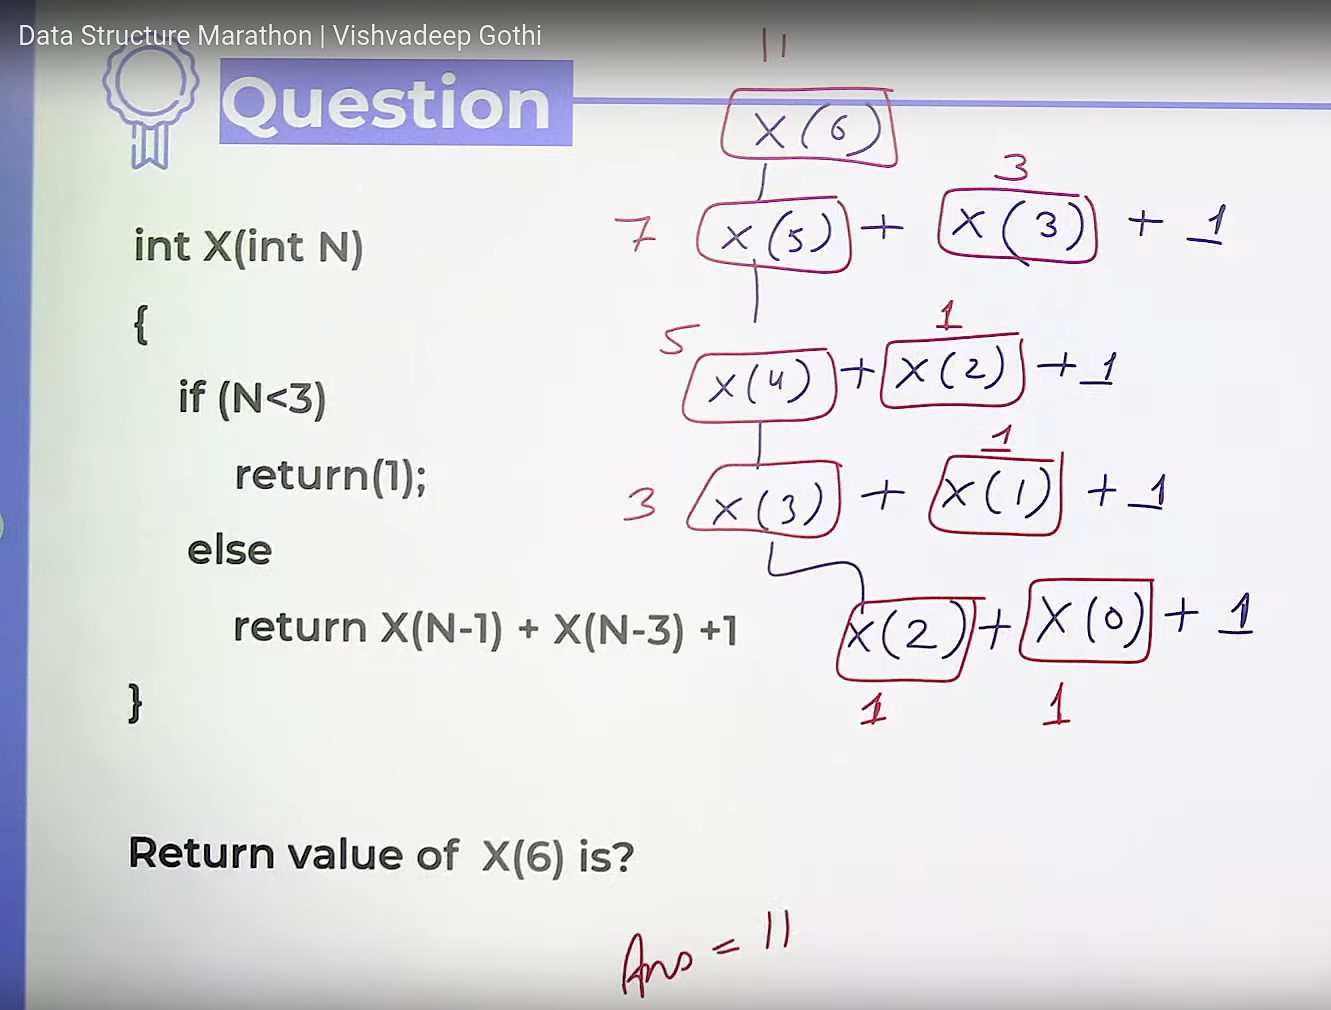 Data Structure Marathon | Vishvadeep Gothi
Question
int X(int N)
{
if (N<3)
return(1);
else
return X(N-1) + X(N-3) +1
}
Return value of X(6) is?
11
X(6)
3
7 X(5) + X(3) + 1
5 1
X(4) + X(2) + 1
1
3 X(3) + X(1) + 1
X(2) + X(0) + 1
1 1
Ans = 11